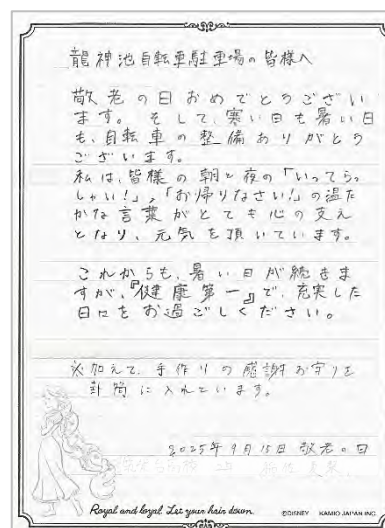 龍神池自転車駐車場の皆様へ
敬老の日おめでとうござい
ます。そして、寒い日も暑い日
も、自転車の整備ありがとう
ございます。
私は、皆様の朝と夜の「いってらっ
しゃい!」、「お帰りなさい!」の温た
かな言葉がとても心の支え
となり、元気を頂いています。
これからも、暑い日が続きま
すが、『健康第一』で、充実した
日々をお過ごしください。
※加えて、手作りの感謝お守りを
封筒に入れています。
2025年9月15日 敬老の日
Royal and loyal Let your hair down.
©DISNEY KAMIO JAPAN INC.